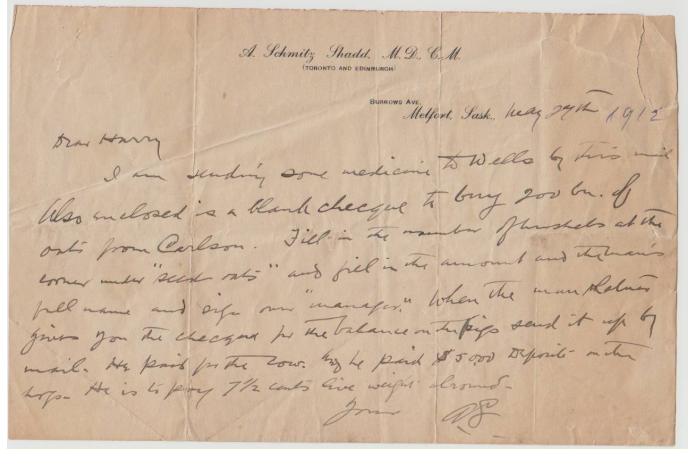 A. Schmitz Shadd, M.D., C.M.
(TORONTO AND EDINBURGH)
BURROWS AVE,
Melfort, Sask., May 27th 1912
Dear Harry
I am sending some medicine to Wells by this mail
Also enclosed is a blank checque to buy 200 bu. of
oats from Carlson. Fill in the number of bushels at the
corner under "seed oats" and fill in the amount and the man's
full name and sign over "manager." When the man
gives you the checque for the balance on the pigs send it up by
mail. He paid for the sow. he paid $50.00 Deposit on the
hogs. He is to pay 7½ cents live weight around.
Yours